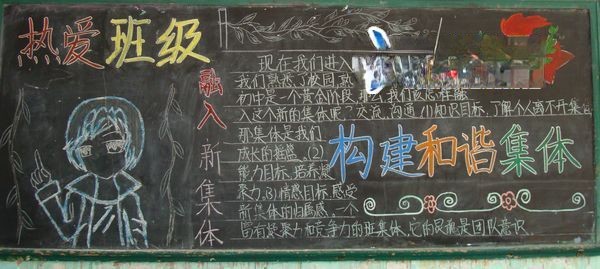 热爱班级
融入新集体
现在我们进入
我们熟悉了校园,熟
初中是一个黄金阶段,那么,我们该怎样融
入这个新的集体呢?交流,沟通(1)知识目标,了解个人离不开集
那集体是我们
成长的摇篮 (2)
能力目标,培养凝
聚力。(3)情感目标,感受
新集体的温暖感。一个
富有凝聚力和竞争力的班集体,它的灵魂是团队意识
构建和谐集体